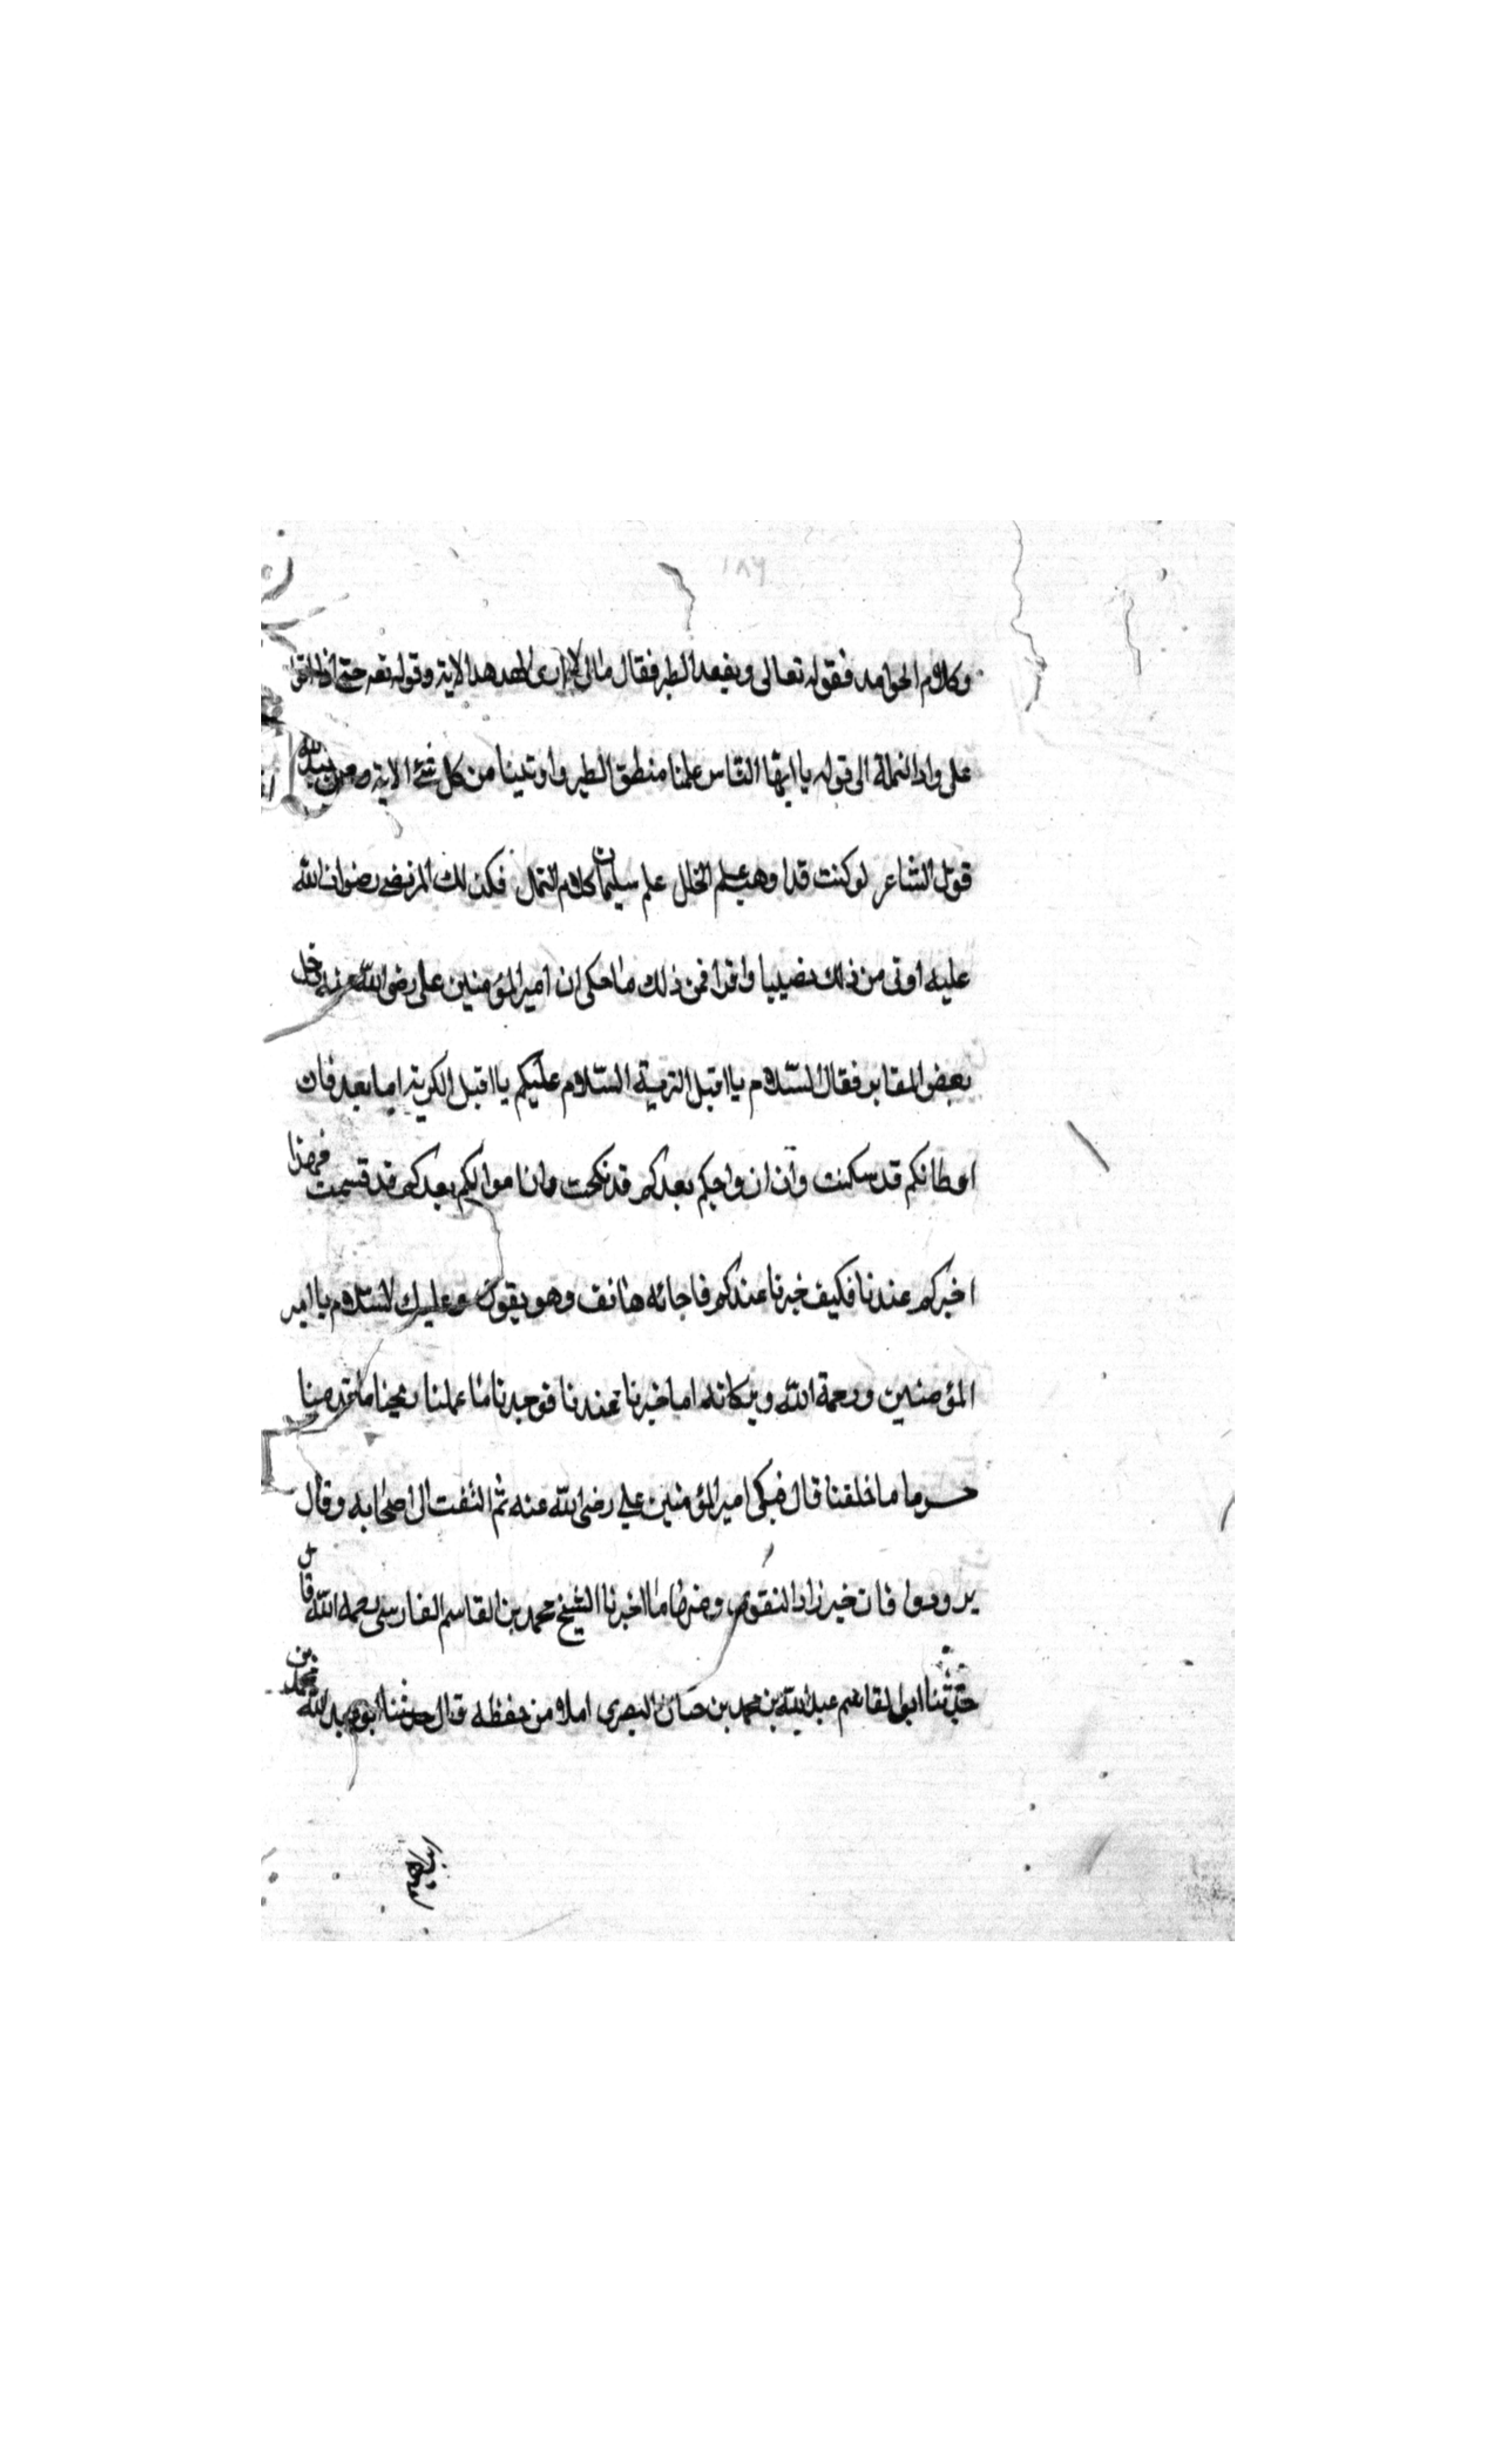 ١٨٦
وكلام الجوامد فقوله تعالى وتفقد الطير فقال مالى لا ارى الهدهد الاية وقوله تعه حتى اذا اتوا
على واد النملة الى قوله يا ايها الناس علمنا منطق الطير واوتينا من كل شئ الاية ومعنى
قول الشاعر لو كنت قد اوهبت علم الخلل علم سليمان كلام النمل فكذلك المرتضى رضوان الله
عليه اوتى من ذلك نصيبا وافرا فمن ذلك ما حكى ان امير المؤمنين على رضى الله عنه دخل
بعض المقابر فقال السلام يا اهل التربة السلام عليكم يا اهل الكربة اما بعد فان
اوطانكم قد سكنت وان ازواجكم بعدكم قد نكحت وان اموالكم بعدكم قد قسمت فهذا
اخبركم عندنا فكيف خبرنا عندكم فاجابه هاتف وهو يقول وعليك السلام يا امير
المؤمنين ورحمة الله وبركاته اما خبرنا عندنا فوجدنا ما عملنا ربحنا ما قدمنا
خسرنا ما خلفنا قال فبكى امير المؤمنين على رضى الله عنه ثم التفت الى اصحابه وقال
تزودوا فان خير زاد التقوى ومنها ما اخبرنا الشيخ محمد بن القاسم الفارسى رحمه الله قال
حدثنا ابو القاسم عبد الله بن محمد بن حسان البصرى املا من حفظه قال حدثنا ابو عبد الله محمد بن
ابراهيم